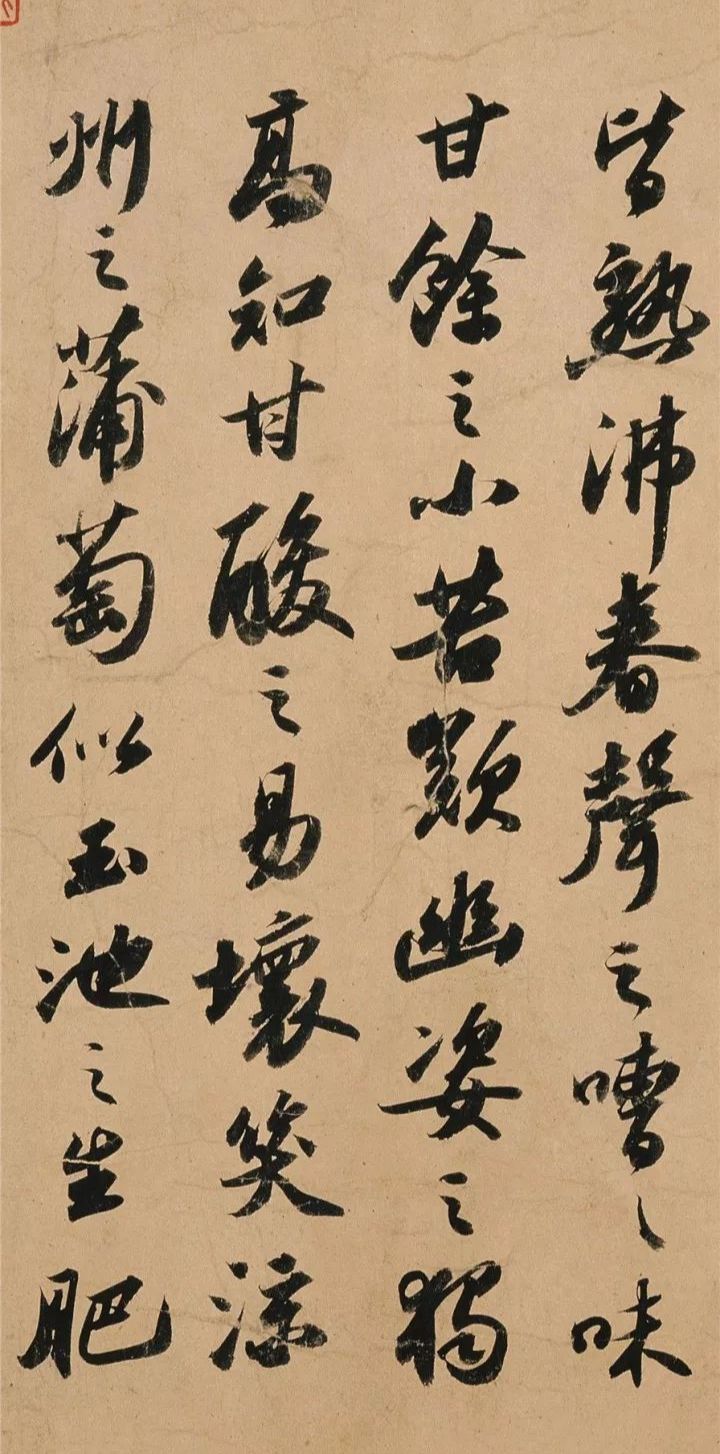 皆熟沸春聲之嘈〻味
甘餘之小苦歎幽姿之獨
高知甘酸之易壞笑涼
州之蒲萄似玉池之生肥